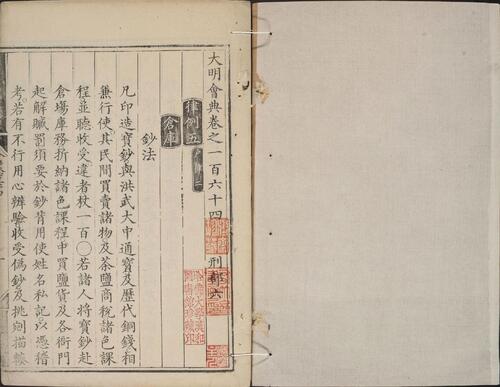 大明會典卷之一百六十四 刑部六
律例五
倉庫
鈔法
凡印造寶鈔與洪武大中通寶及歷代銅錢相
兼行使其民間買賣諸物及茶鹽商稅諸色課
程並聽收受違者杖一百○若諸人將寶鈔赴
倉場庫務折納諸色課程中買鹽貨及各衙門
起解贓罰須要於鈔背用使姓名私記以憑稽
考若有不行用心辨驗收受偽鈔及挑剜描輳